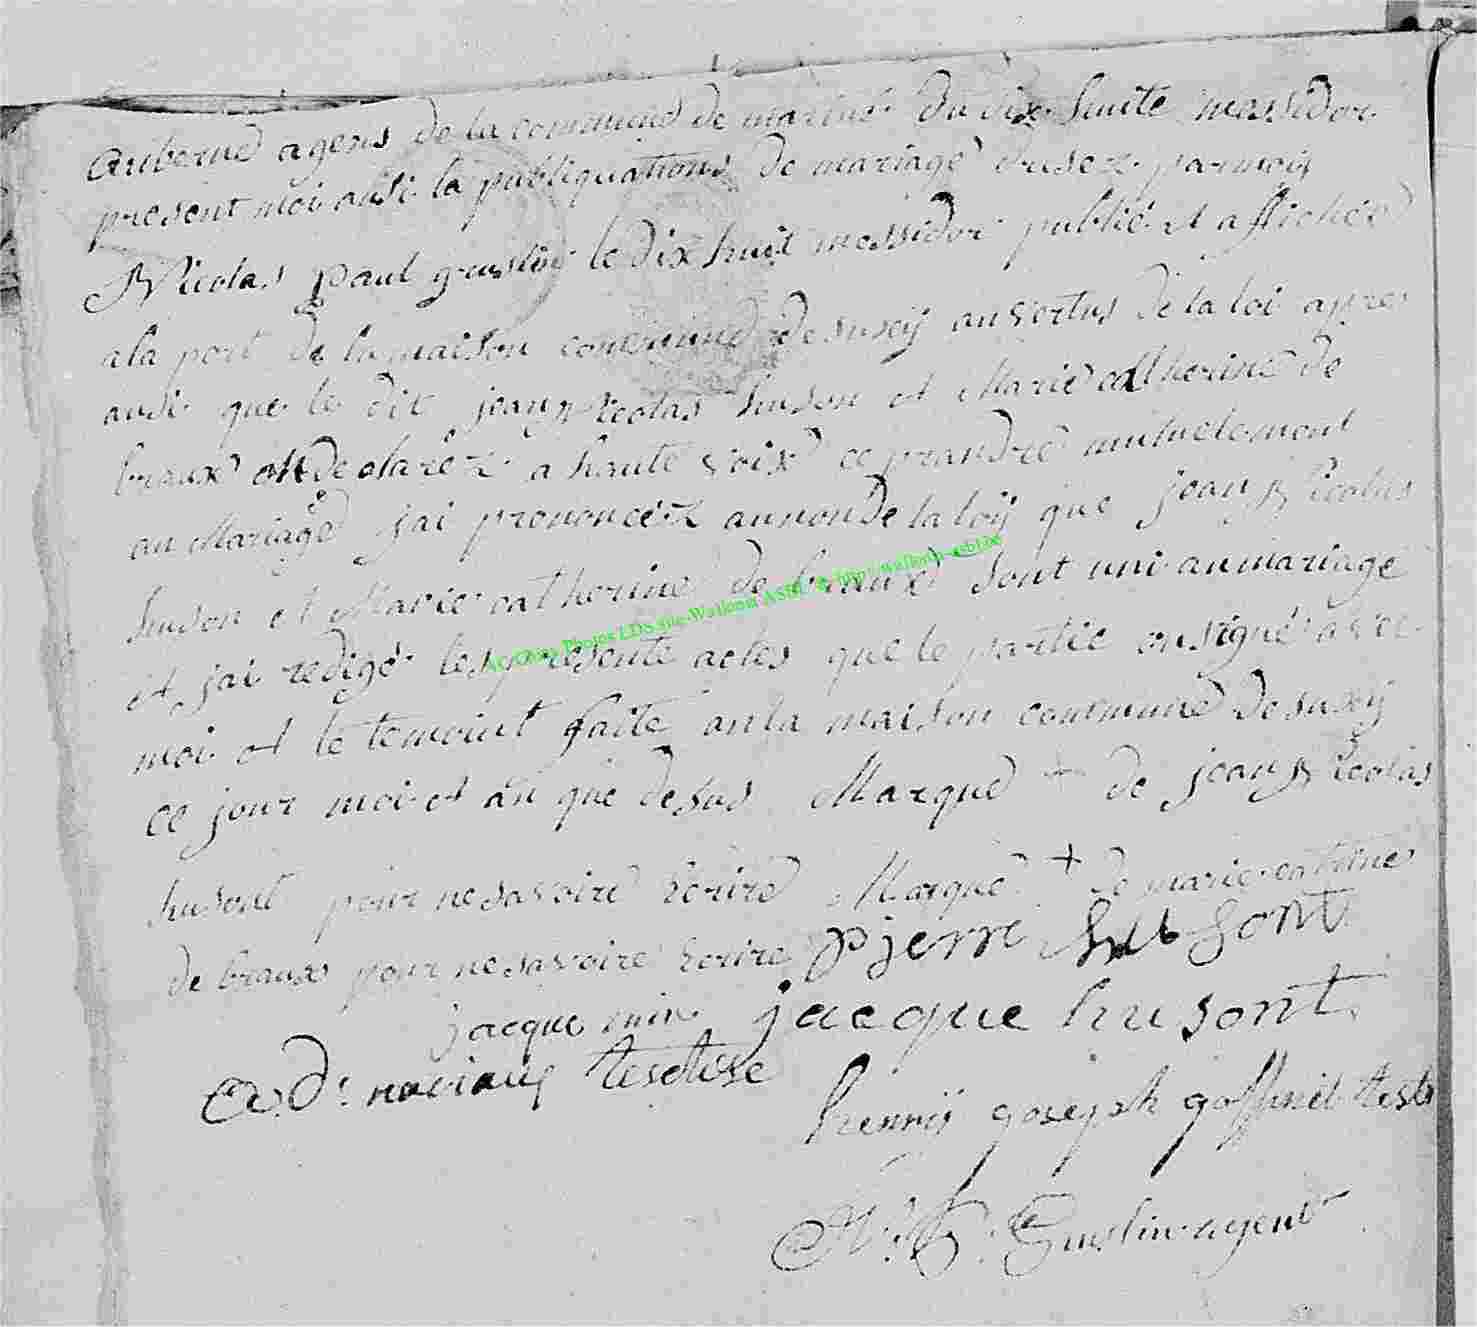 agens de la commune de du dix huite messidor
present moi ausi la publiquations de mariage par moij
Nicolas paul guslin le dix huit messidor publié et affichée
a la port de la maison commune de suxeij au vertus de la loi apres
ausi que le dit jean Nicolas huson et Marie catherine de
braux on declarez a haute voix ce prandre mutuelement
an Mariage jai prononcéz au nom de la loij que jean Nicolas
huson et Marie catherine de braux sont uni an mariage
et jai redigé les presente actes que le partie on signé avec
moi et le temoint faite an la maison commune de suxeij
ce jour moi et an que desus Marque + de jean Nicolas
husont pour ne savoire Ecrire Marque + de marie catrine
de braux pour ne savoire Ecrire pjerre husont
jacque min jacque husont
hennij goseph goffinet
N: P: Guslin agent